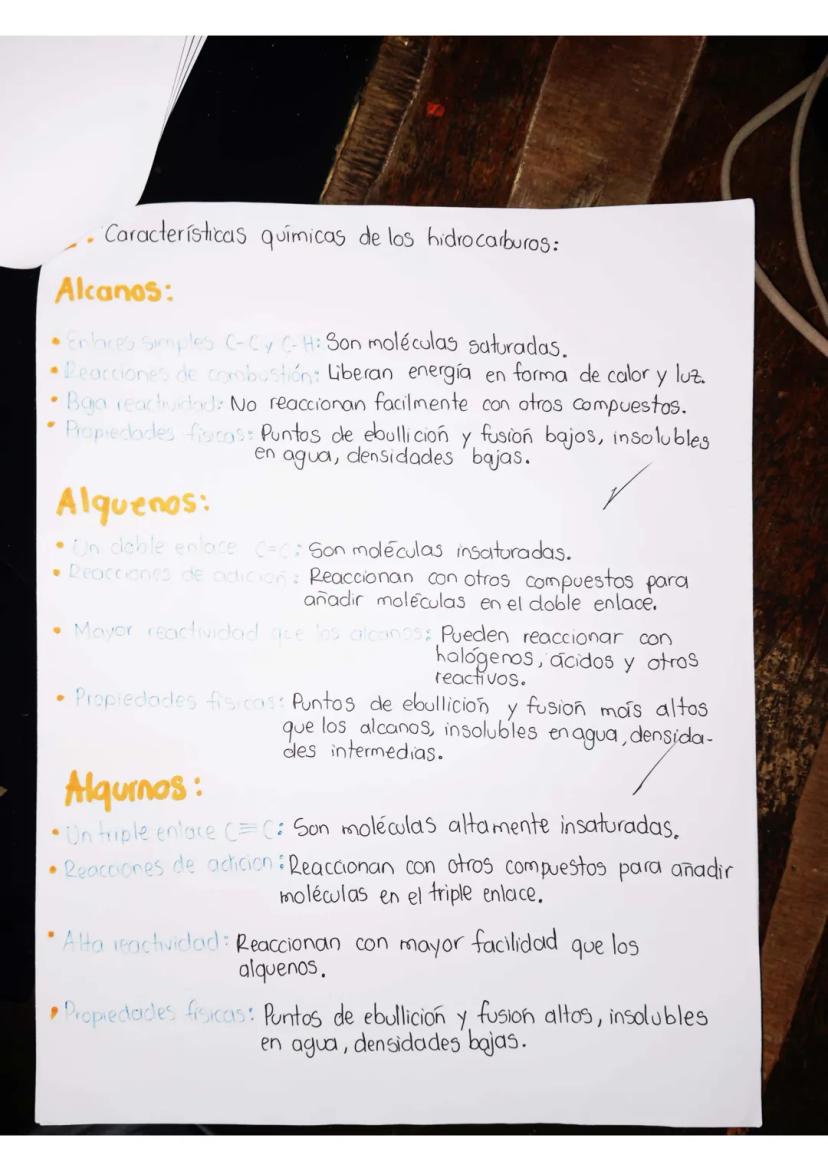 . Características químicas de los hidrocarburos:
Alcanos:
• Enlaces simples C-C y C-H: Son moléculas saturadas.
• Reacciones de combustión: Liberan energía en forma de calor y luz.
• Baja reactividad: No reaccionan facilmente con otros compuestos.
• Propiedades físicas: Puntos de ebullición y fusión bajos, insolubles
en agua, densidades bajas.
Alquenos:
• Un doble enlace C=C: Son moléculas insaturadas.
• Reacciones de adición: Reaccionan con otros compuestos para
añadir moléculas en el doble enlace.
• Mayor reactividad que los alcanos: Pueden reaccionar con
halógenos, ácidos y otros
reactivos.
• Propiedades físicas: Puntos de ebullición y fusión más altos
que los alcanos, insolubles en agua, densida-
des intermedias.
Alqurnos:
• Un triple enlace C≡C: Son moléculas altamente insaturadas.
• Reacciones de adición: Reaccionan con otros compuestos para añadir
moléculas en el triple enlace.
• Alta reactividad: Reaccionan con mayor facilidad que los
alquenos.
• Propiedades físicas: Puntos de ebullición y fusión altos, insolubles
en agua, densidades bajas.